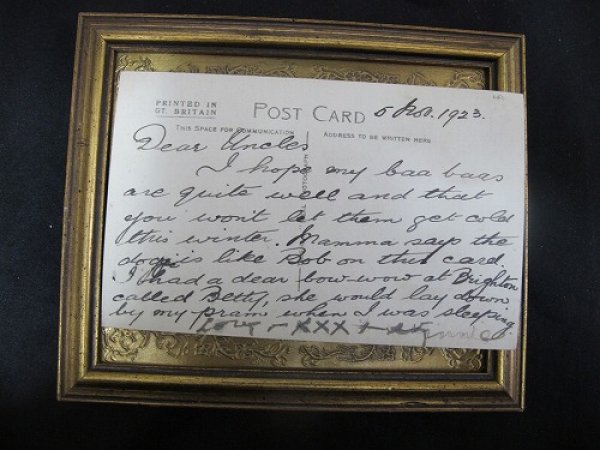 PRINTED IN
GT. BRITAIN
POST CARD
5 Nov. 1923.
THIS SPACE FOR COMMUNICATION
ADDRESS TO BE WRITTEN HERE
Dear Uncles
I hope my baa baas
are quite well and that
you won't let them get cold
this winter. Mamma says the
dog is like Bob on this card.
I had a dear bow-wow at Brighton
called Betty, she would lay down
by my pram when I was sleeping.
Love XXX